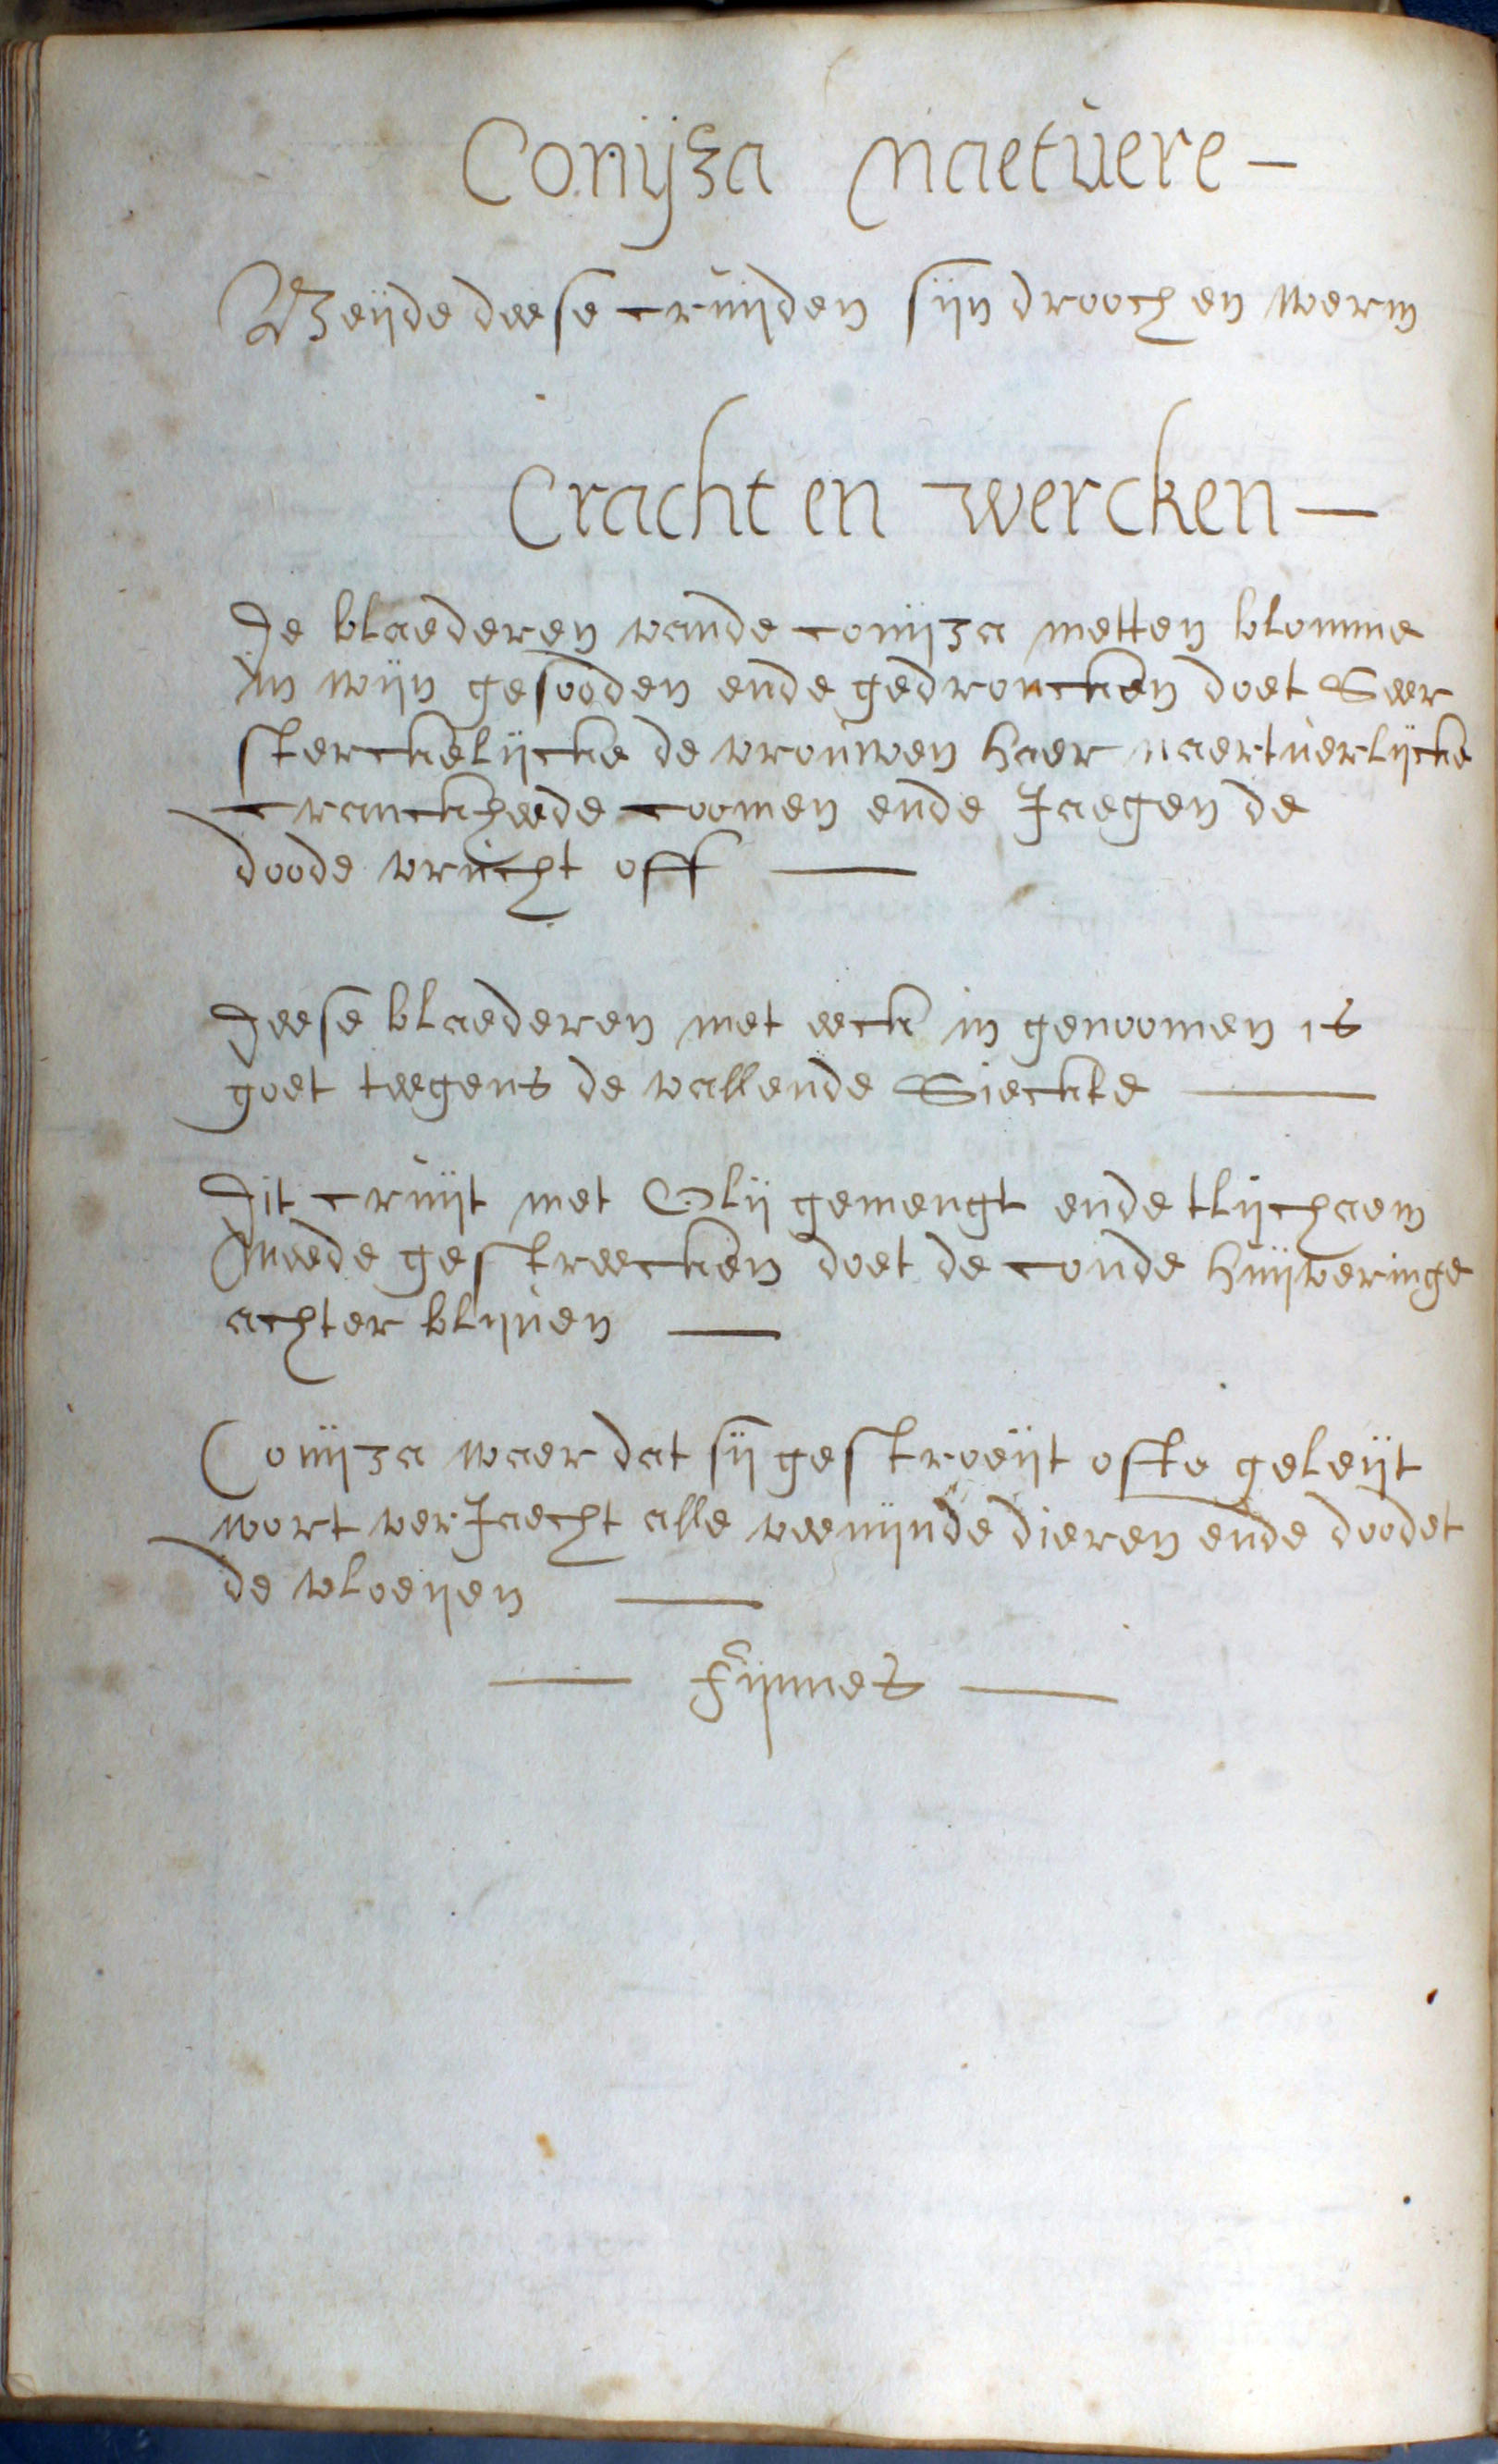 Conijza naetuere —
Beijde deese cruijden sijn drooch en werm
Cracht en wercken —
De blaederen vande conijza metten blomme
in wijn gesooden ende gedroncken doet Seer
sterckelijcke de vrouwen haer naertuerlijcke
cranckheede coomen ende Jaegen de
doode vrucht off —
Deese blaederen met eeck in genoomen is
goet teegens de vallende Sieckte —
Dit cruijt met Olij gemengt ende tlijchaem
Meede gestreecken doet de coude huijveringe
achter blijven —
Conijza waer dat sij gestroeijt ofte geleijt
wort verJaecht alle veenijnde dieren ende doodet
de vloeijen —
— Fijnnes —